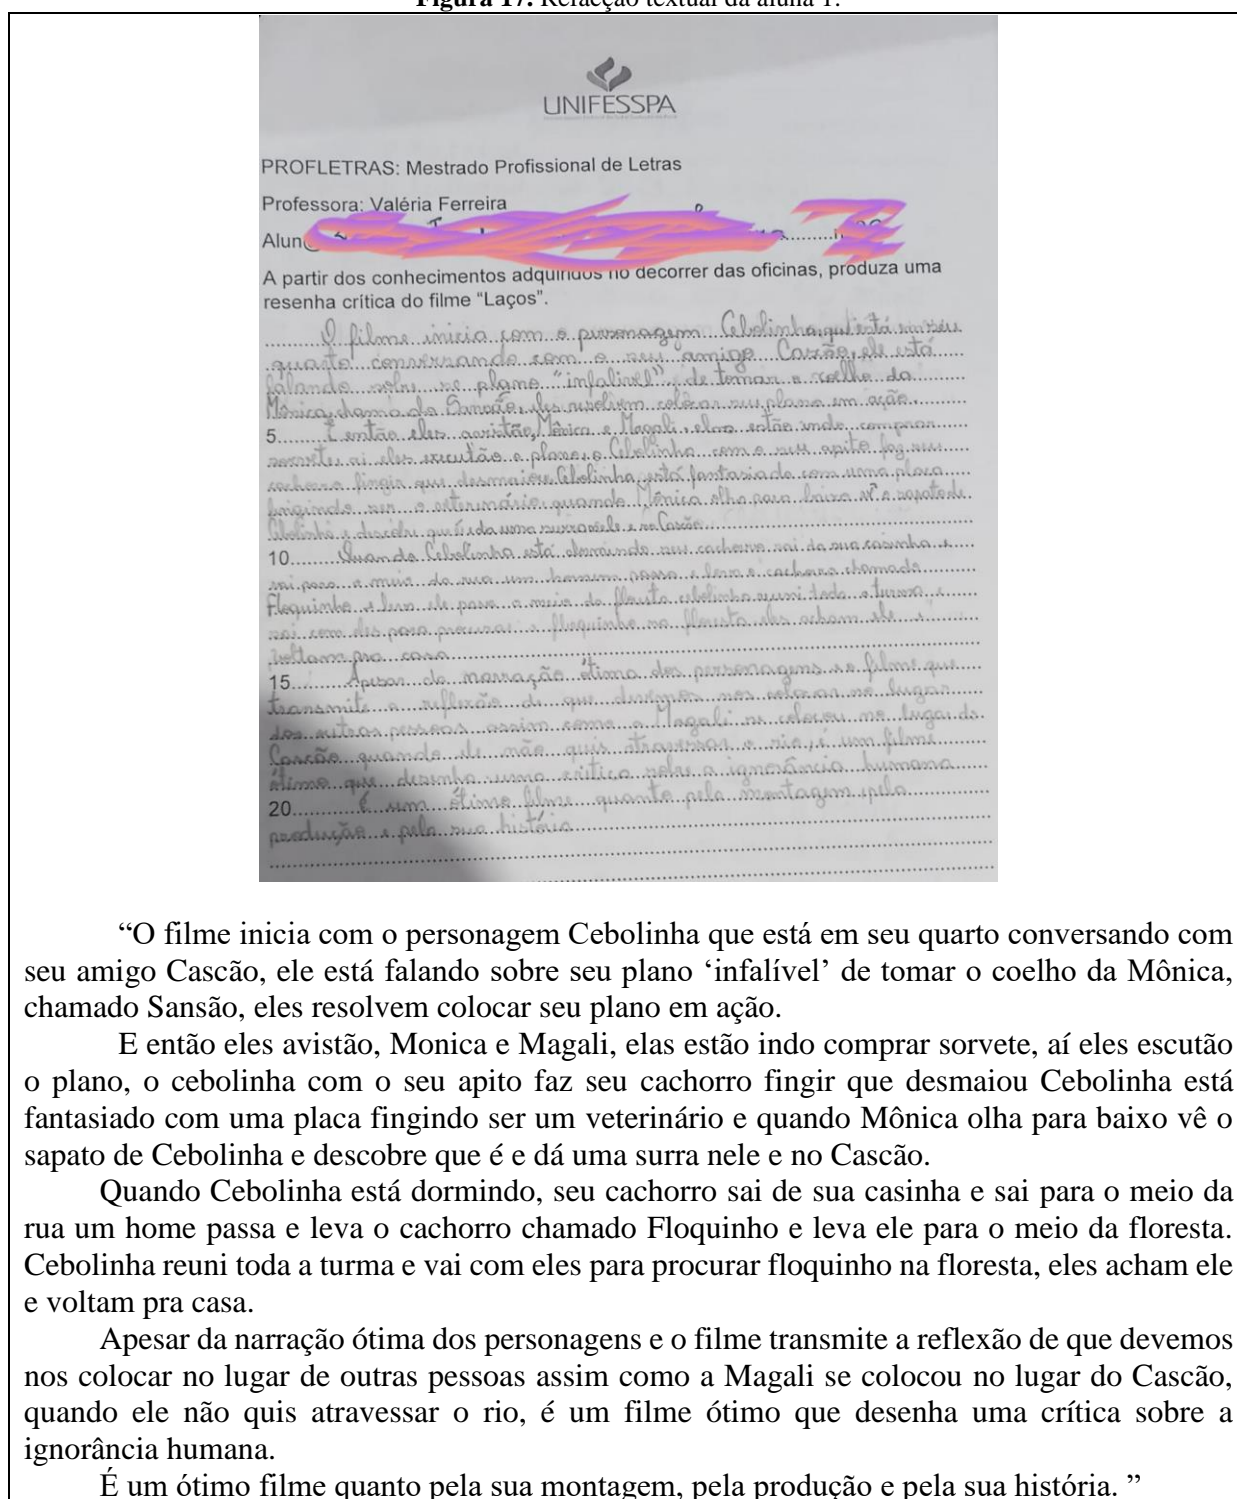 Figura 17. Refacção textual da aluna 1.
UNIFESSPA
PROFLETRAS: Mestrado Profissional de Letras
Professora: Valéria Ferreira
Alun
A partir dos conhecimentos adquiridos no decorrer das oficinas, produza uma
resenha crítica do filme “Laços”.
O filme inicia com o personagem Cebolinha que está em seu
quarto conversando com o seu amigo Cascão, ele está
falando sobre se plano "infalivel" de tomar o coelho da
Mônica, chamado Sansão, eles resolvem colocar seu plano em ação.
5 E então eles avistão, Mônica e Magali, elas estão indo comprar
sorvete, ai eles executão o plano, o Cebolinha com o seu apito faz seu
cachorro fingir que desmaiou Cebolinha está fantasiado com uma placa
fingindo ser o veterinário quando Mônica olha para baixo vê o sapato de
Cebolinha e descobre que é e da uma surra nele e no Cascão.
10 Quando Cebolinha está dormindo seu cachorro sai da sua casinha e
sai para o meio da rua um homem passa e leva o cachorro chamado
Floquinho e leva ele para o meio da floresta cebolinha reuni toda a turma e
vai com eles para procurar o floquinho na floresta eles acham ele e
voltam pra casa
15 Apesar da narração ótima dos personagens e o filme que
transmite a reflexão de que devemos nos colocar no lugar
das outras pessoas assim como a Magali se colocou no lugar do
Cascão quando ele não quis atravessar o rio, é um filme
ótimo que desenha uma crítica sobre a ignorância humana
20 É um ótimo filme quanto pela montagem, pela
produção e pela sua história
“O filme inicia com o personagem Cebolinha que está em seu quarto conversando com
seu amigo Cascão, ele está falando sobre seu plano ‘infalível’ de tomar o coelho da Mônica,
chamado Sansão, eles resolvem colocar seu plano em ação.
E então eles avistão, Monica e Magali, elas estão indo comprar sorvete, aí eles escutão
o plano, o cebolinha com o seu apito faz seu cachorro fingir que desmaiou Cebolinha está
fantasiado com uma placa fingindo ser um veterinário e quando Mônica olha para baixo vê o
sapato de Cebolinha e descobre que é e dá uma surra nele e no Cascão.
Quando Cebolinha está dormindo, seu cachorro sai de sua casinha e sai para o meio da
rua um home passa e leva o cachorro chamado Floquinho e leva ele para o meio da floresta.
Cebolinha reuni toda a turma e vai com eles para procurar floquinho na floresta, eles acham ele
e voltam pra casa.
Apesar da narração ótima dos personagens e o filme transmite a reflexão de que devemos
nos colocar no lugar de outras pessoas assim como a Magali se colocou no lugar do Cascão,
quando ele não quis atravessar o rio, é um filme ótimo que desenha uma crítica sobre a
ignorância humana.
É um ótimo filme quanto pela sua montagem, pela produção e pela sua história. ”